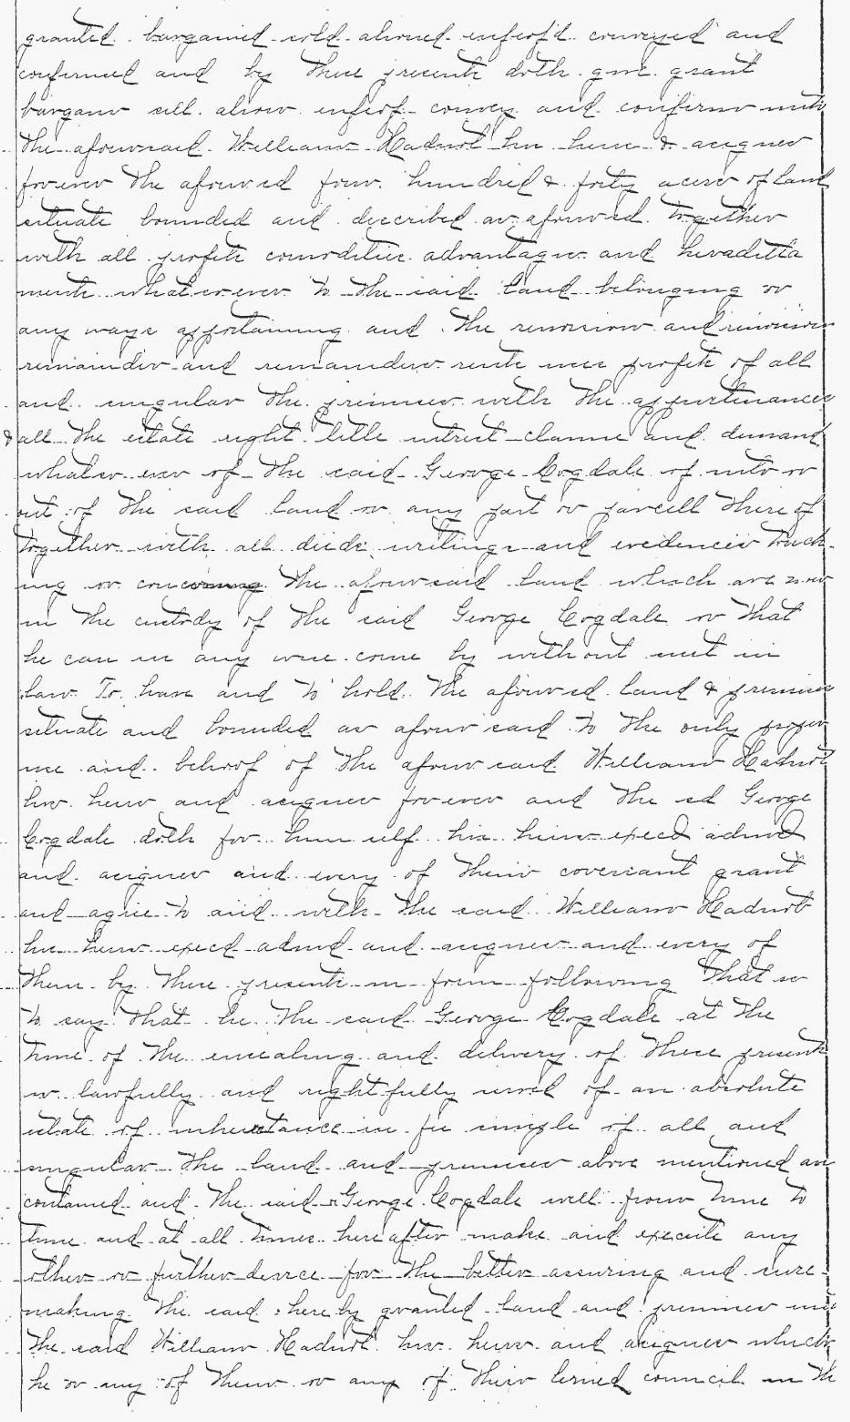 granted bargained sold aliened enfeofd conveyed and
confirmed and by these presents doth give grant
bargain sell alien enfeof convey and confirm unto
the aforesaid William Hadnot his heirs & asignes
forever the aforesd four hundred & forty acers of land
situate bounded and described as aforesd together
with all profits comodities advantages and heradetta
ments whatsoever to the said land belonging or
any ways appertaining and the reversion and reversions
remainder and remainders rents ises profits of all
and singular the premises with the appurtinances
& all the estate right title intrest claime and demand
whatso ever of the said George Cogdale of into or
out of the said land or any part or parcell there of
together with all deeds writings and evidences touch
ing or concerning the aforesaid land which are now
in the custody of the said George Cogdale or that
he can in any wise come by without suit in
law To have and to hold the aforesd land & premises
situate and bounded as afore said to the only proper
use and behoof of the afore said William Hadnot
his heirs and asignes forever and the sd George
Cogdale doth for him self his heirs execd admd
and asignes and every of their covenant grant
and agree to and with the said William Hadnot
his heirs execd admd and asignes and every of
them by these presents in form following that is
to say that he the said George Cogdale at the
time of the ensealing and delivery of these presents
is lawfully and rightfully seised of an absolute
estate of inheretance in fee simple of all and
singular the land and premises above mentioned an
contained and the said George Cogdale will from time to
time and at all times here after make and execute any
other or further device for the better assuring and sure
making the said hereby granted land and premises unto
the said William Hadnot his heirs and asignes which
he or any of them or any of their lerned council in the